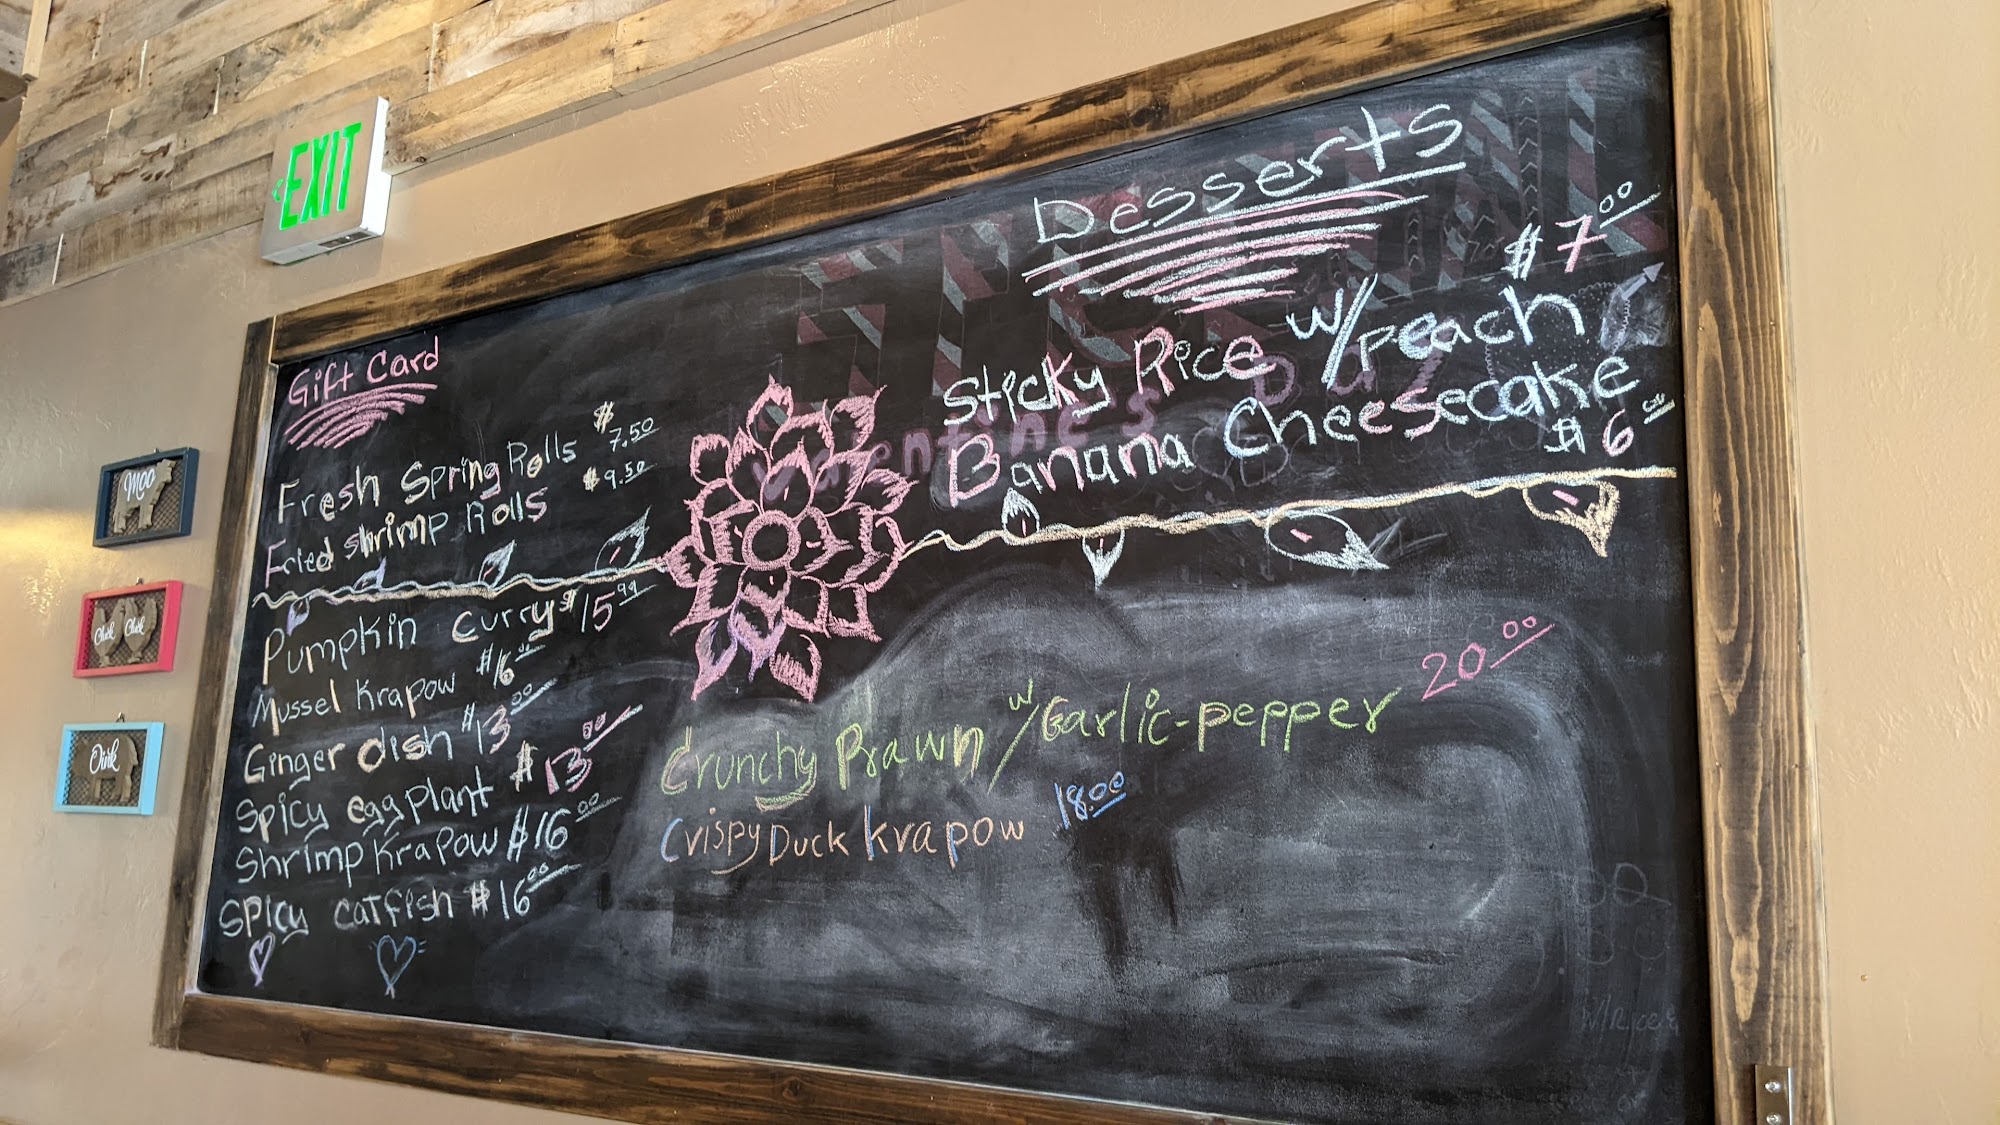 EXIT
Moo
Chick Chick
Oink
Gift Card
Fresh Spring Rolls $7.50
Fried shrimp Rolls $9.50
Pumpkin Curry $15.99
Mussel Krapow $16.00
Ginger dish $13.00
Spicy eggplant $13.00
Shrimp Krapow $16.00
Spicy catfish $16.00
Desserts
$7.00
Sticky Rice w/peach
Banana Cheesecake
$6.00
Crunchy Prawn w/Garlic-pepper 20.00
Crispy Duck Krapow 18.00